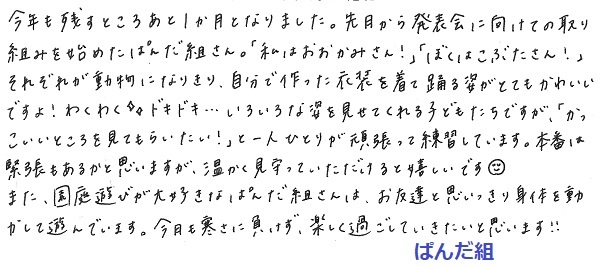 今年も残すところあと1か月となりました。先月から発表会に向けての取り
組みを始めたぱんだ組さん。「私はおおかみさん!」「ぼくはこぶたさん!」
それぞれが動物になりきり、自分で作った衣装を着て踊る姿がとてもかわいい
ですよ!わくわく♢♢ドキドキ…いろいろな姿を見せてくれる子どもたちですが、「かっ
こいいところを見てもらいたい!」と一人ひとりが頑張って練習しています。本番は
緊張もあるかと思いますが、温かく見守っていただけると嬉しいです☺
また、園庭遊びが大好きなぱんだ組さんは、お友達と思いっきり身体を動
かして遊んでいます。今月も寒さに負けず、楽しく過ごしていきたいと思います!!
ぱんだ組